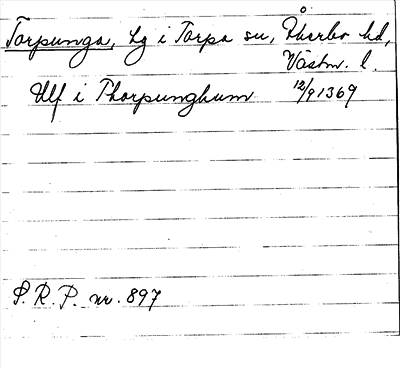 Torpunga, Lg i Torpa sn, Åkerbo hd,
Västm. l.
Ulf i Thorpunghum 12/9 1369
P. R. P. nr. 897